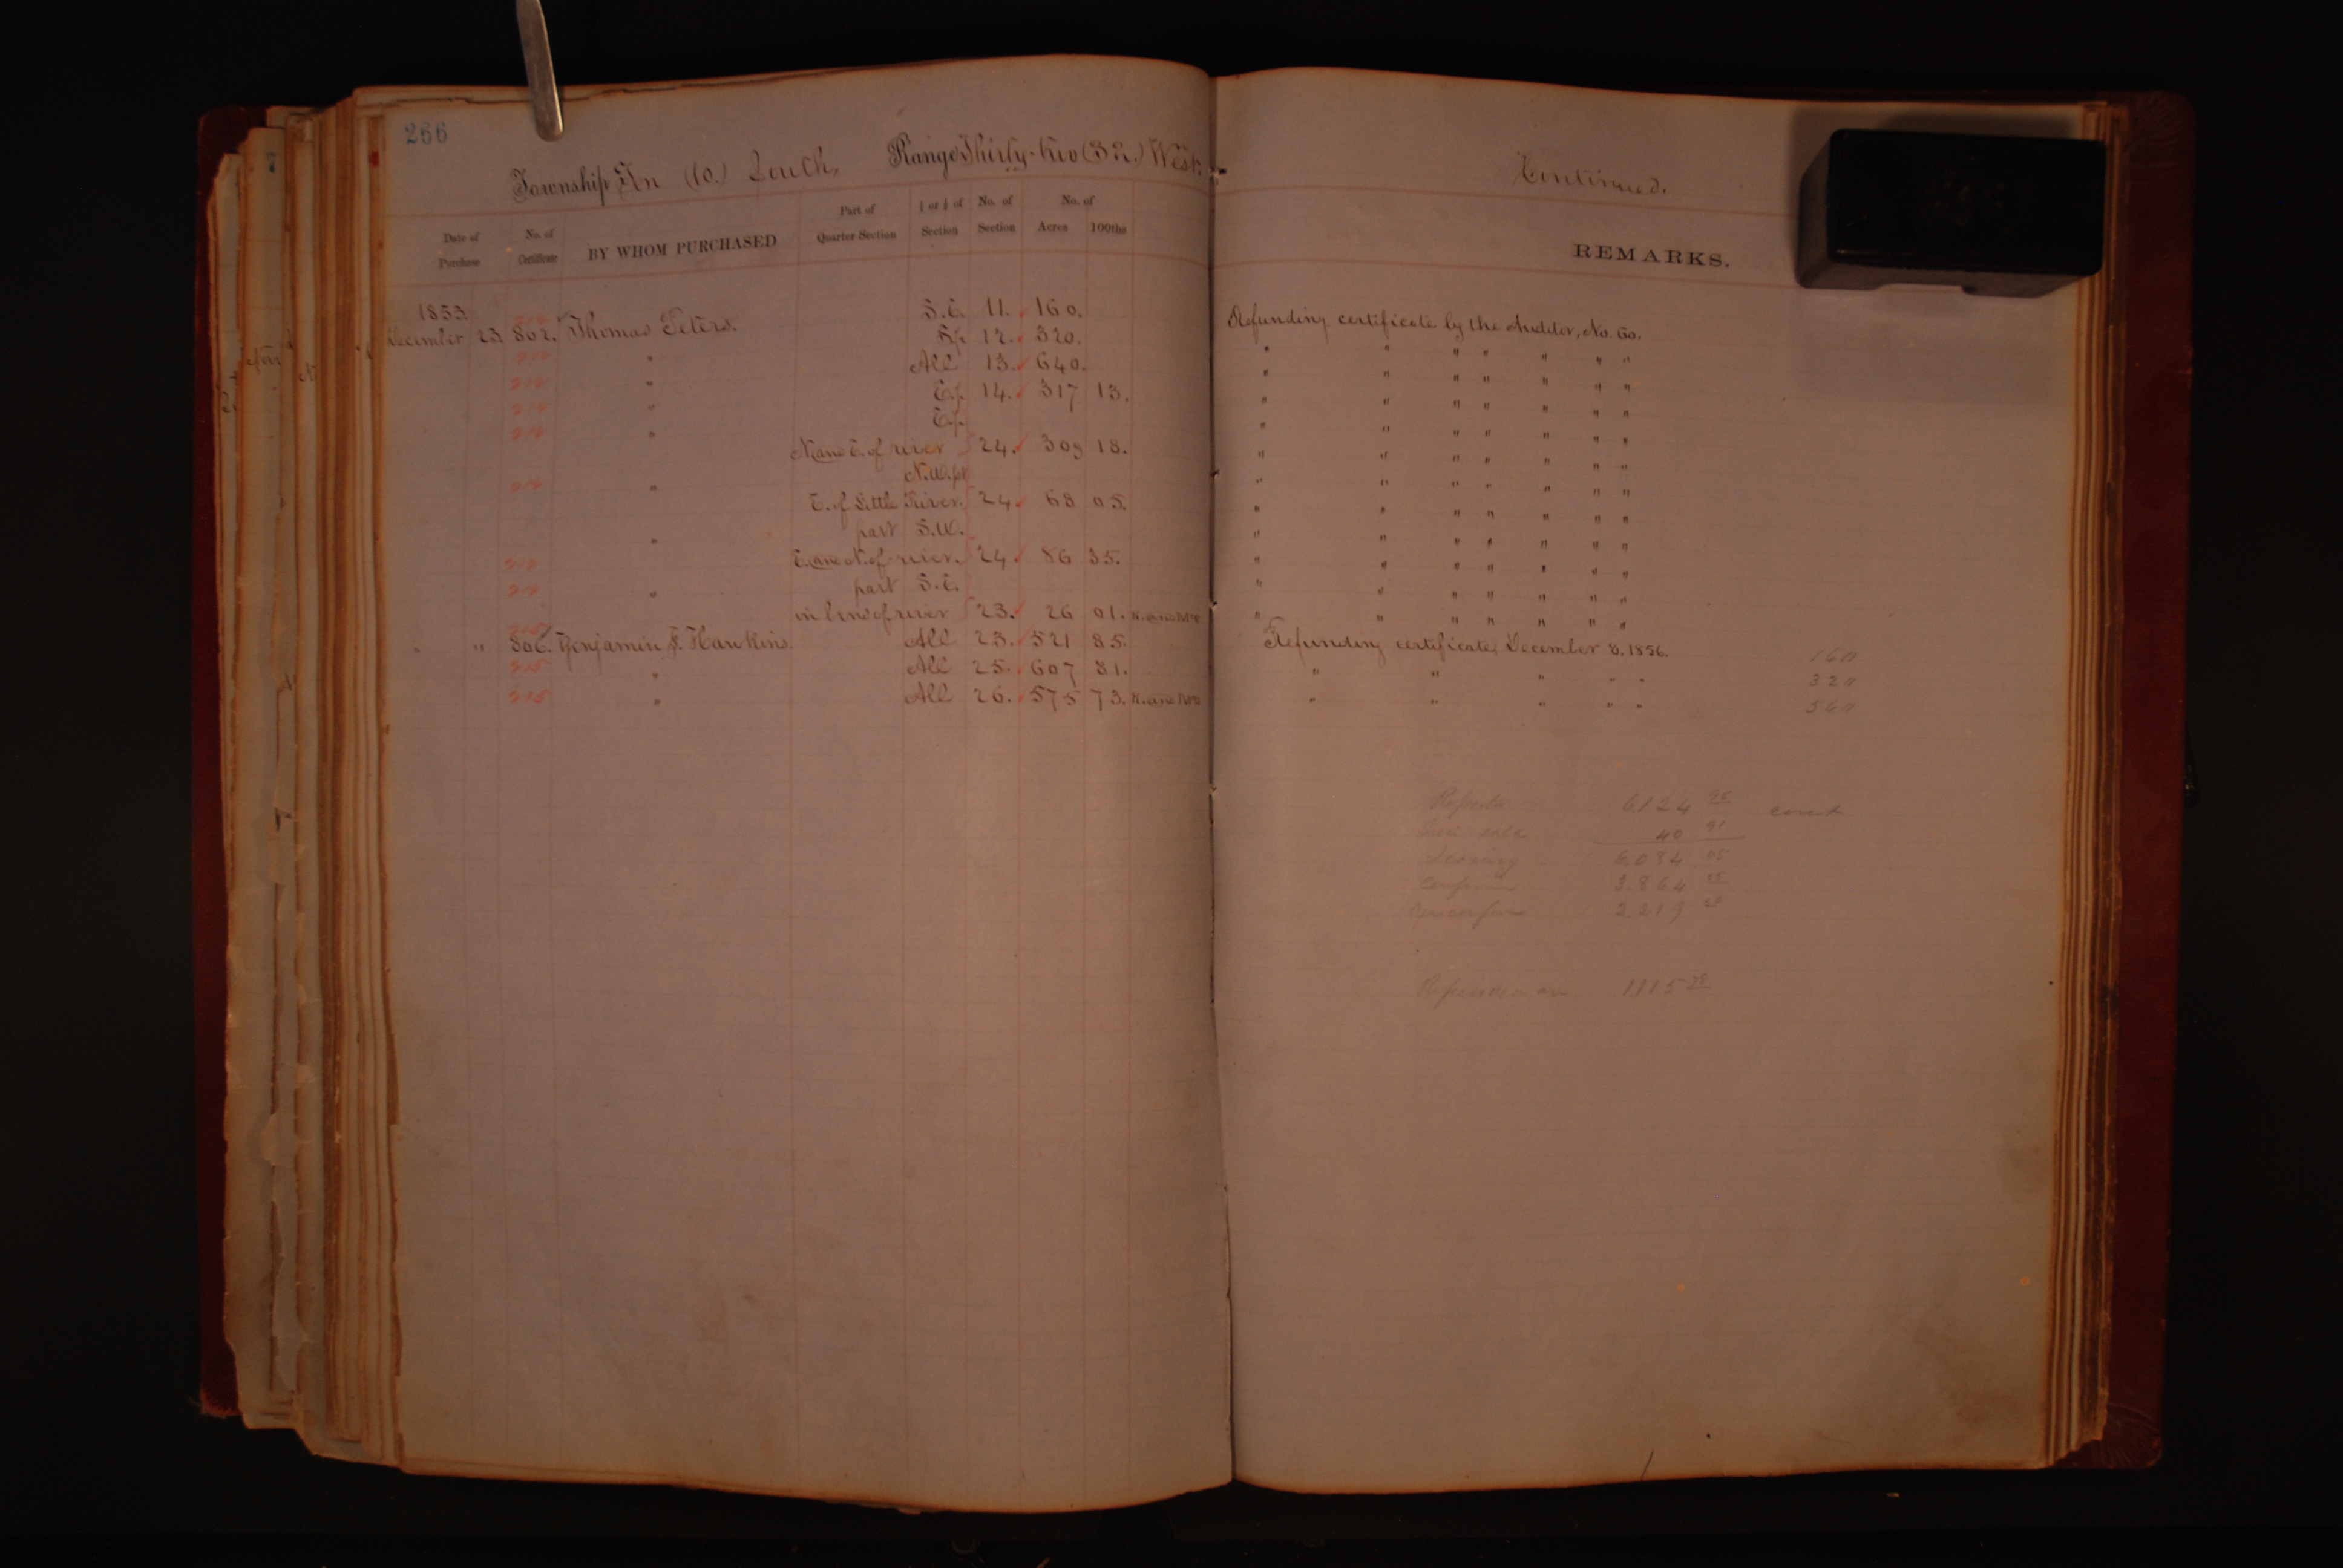 256
Township Ten (10.) South, Range Thirty-two (32.) West.
Continued.
Date of Purchase
No. of Certificate
BY WHOM PURCHASED
Part of Quarter Section
½ or ¼ of Section
No. of Section
No. of Acres 100ths
REMARKS.
1853. S.E. 11. 160. Refunding certificate by the Auditor, No. 60.
December 23. 802. Thomas Peters. S½ 12. 320. " " " " " " "
" All 13. 640. " " " " " " "
" E½ 14. 317 13. " " " " " " "
" E½
" N. and E. of river 24. 309 18. " " " " " " "
N.W. pt
" E. of Little River. 24. 63 05. " " " " " " "
part S.W.
" E. and N. of river. 24. 86 35. " " " " " " "
part S.E.
" in bend of river 23. 26 01. " " " " " " "
" " 806. Benjamin F. Hawkins. All 23. 521 85. Refunding certificate, December 8. 1856.
215 " All 25. 607 81. " " " " "
215 " All 26. 575 73. " " " " "
160
320
560
6124 95
40 91
Leaving 6.084 05
confirm 3.864
2.219
1115